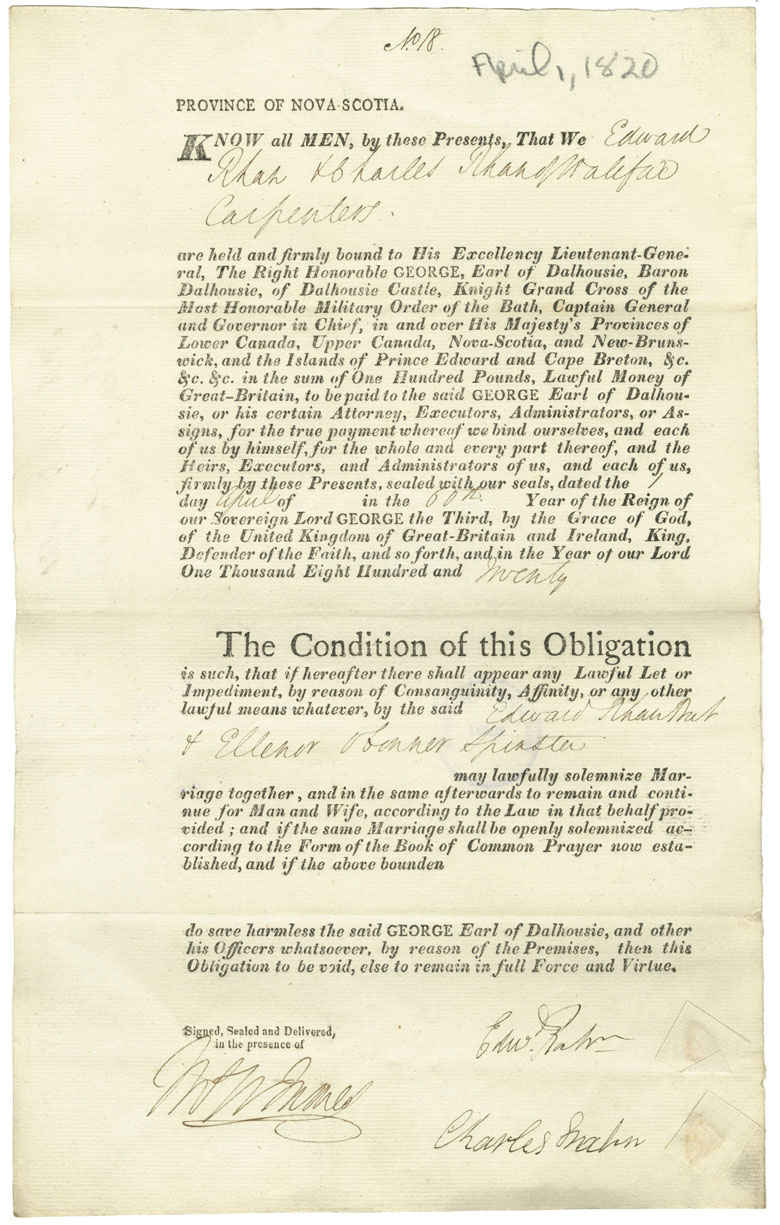 No. 18.
April 1, 1820
PROVINCE OF NOVA-SCOTIA.
KNOW all MEN, by these Presents, That We Edward
Rhan & Charles Rhan of Halifax
Carpenters.
are held and firmly bound to His Excellency Lieutenant-Gene-
ral, The Right Honorable GEORGE, Earl of Dalhousie, Baron
Dalhousie, of Dalhousie Castle, Knight Grand Cross of the
Most Honorable Military Order of the Bath, Captain General
and Governor in Chief, in and over His Majesty's Provinces of
Lower Canada, Upper Canada, Nova-Scotia, and New-Bruns-
wick, and the Islands of Prince Edward and Cape Breton, &c.
&c. &c. in the sum of One Hundred Pounds, Lawful Money of
Great-Britain, to be paid to the said GEORGE Earl of Dalhou-
sie, or his certain Attorney, Executors, Administrators, or As-
signs, for the true payment whereof we bind ourselves, and each
of us by himself, for the whole and every part thereof, and the
Heirs, Executors, and Administrators of us, and each of us,
firmly by these Presents, sealed with our seals, dated the 1
day April of in the 60th Year of the Reign of
our Sovereign Lord GEORGE the Third, by the Grace of God,
of the United Kingdom of Great-Britain and Ireland, King,
Defender of the Faith, and so forth, and in the Year of our Lord
One Thousand Eight Hundred and Twenty
The Condition of this Obligation
is such, that if hereafter there shall appear any Lawful Let or
Impediment, by reason of Consanguinity, Affinity, or any other
lawful means whatever, by the said Edward Rhan Bat
& Ellenor O'Conner Spinster
may lawfully solemnize Mar-
riage together, and in the same afterwards to remain and conti-
nue for Man and Wife, according to the Law in that behalf pro-
vided; and if the same Marriage shall be openly solemnized ac-
cording to the Form of the Book of Common Prayer now esta-
blished, and if the above bounden
do save harmless the said GEORGE Earl of Dalhousie, and other
his Officers whatsoever, by reason of the Premises, then this
Obligation to be void, else to remain in full Force and Virtue.
Signed, Sealed and Delivered,
in the presence of
Edwd. Rahn
Charles Rahn